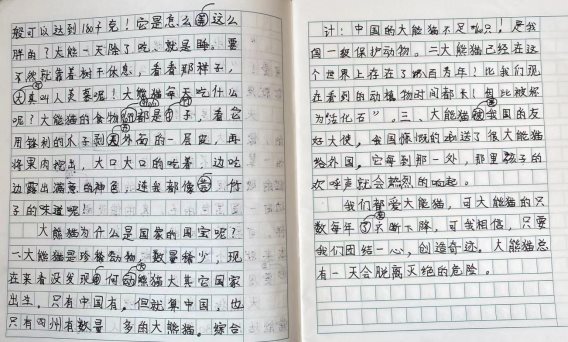 般可以达到180千克！它是怎么这么
胖的？大熊一天除了吃，就是睡，要
不然就靠着树干休息，看看那样子，
真叫人羡慕呢！大熊猫每天吃什么
呢？大熊猫的食物都是子，看它
用锋利的爪子到外面的一层皮，再
将果肉挖出，大口大口的吃着，边吃
边露出满意的神色，连我都像竹
子的味道呢！
大熊猫为什么是国家的国宝呢？
一、大熊猫是珍稀动物，数量稀少，现
在来者没发现何熊猫大其它国家
出生，只有中国有，但就算中国，也
只有四州有数量多的大熊猫。综合
计：中国的大熊猫不足只！是我
国一级保护动物。二大熊猫已经在这
个世界上存在了百万年！比我们现
在看到的动植物时间都长！因此被称
为“活化石”，三、大熊猫我国的友
好大使，我国慷慨的送了很大熊猫
给外国，它每到那一处，那里孩子的
欢呼声就会热烈的响起。
我们都爱大熊猫，可大熊猫的只
数每年不断下降，可我相信，只要
我们团结一心，创造奇迹，大熊猫总
有一天会脱离灭绝的危险。